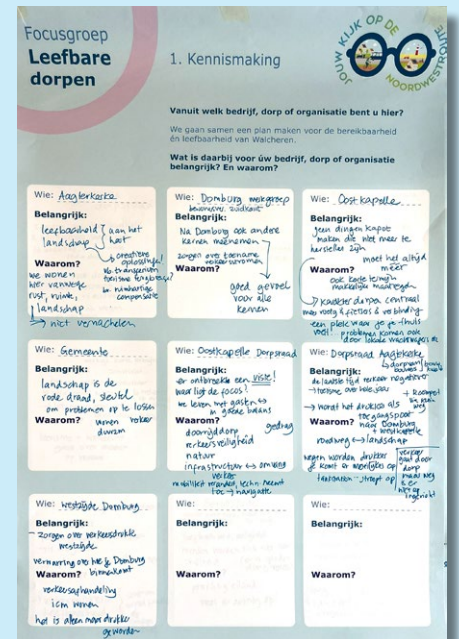 Focusgroep
Leefbare
dorpen
1. Kennismaking
JOUW KIJK OP DE NOORDWESTROUTE
Vanuit welk bedrijf, dorp of organisatie bent u hier?
We gaan samen een plan maken voor de bereikbaarheid
én leefbaarheid van Walcheren.
Wat is daarbij voor úw bedrijf, dorp of organisatie
belangrijk? En waarom?
Wie: Agterkerke
Belangrijk:
leefbaarheid
landschap
aan het
hart
creatieve
oplossing!
Waarom?
we wonen
hier vanwege
rust, ruimte,
landschap
compensatie
→ niet vernachelen
Wie: Domburg werkgroep
Belangrijk:
Na Domburg ook andere
kernen meenemen
zorgen over toename
Waarom?
goed gevoel
voor alle
kernen
Wie: Oostkapelle
Belangrijk:
geen dingen kapot
maken die niet meer te
herstellen zijn
moet het altijd
meer
Waarom?
ook korte termijn
karakter dorpen centraal
meer voetg & fietsers & verbinding
een plek waar je je thuis
voel!
problemen komen ook
door lokale
Wie: Gemeente
Belangrijk:
landschap is de
rode draad, sleutel
om problemen op te lossen
Waarom?
wonen
Wie: Oostkapelle Dorpsraad
Belangrijk:
er ontbreekt een visie!
waar ligt de focus?
we leven met gasten ↔
in goede balans
Waarom?
gedrag
doorrijddorp
verkeersveiligheid
natuur
infrastructuur ↔ omgeving
verkeer
toe → navigatie
Wie: Dorpsraad Aagtekerke
Belangrijk:
de laatste tijd verkeer negatiever
→ toerisme over hele jaar
→ wordt het drukker als
toegangspoort
Waarom?
naar Domburg
+ Oostkapelle
rondweg ↔ landschap
wegen worden drukker
verkeer
gaat door
dorp
maar weg
is er
niet op
ingericht
Wie: Westzijde Domburg
Belangrijk:
– zorgen over verkeersdrukte
westzijde
verwarring over hoe je Domburg
binnenkomt
Waarom?
verkeersafhandeling
icm wonen
het is alleen maar drukker
geworden
Wie:
Belangrijk:
Waarom?
Wie:
Belangrijk:
Waarom?